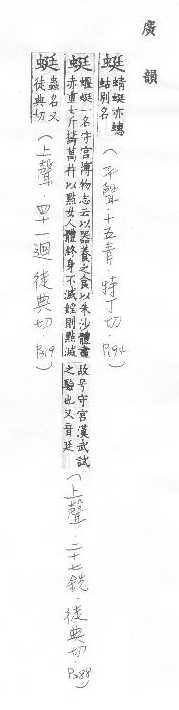 廣韻
蜓 蜻蜓亦蟪
蛄別名
(平聲.十五青.特丁切.P194)
蜓 蝘蜓一名守宮博物志云以器養之食以朱沙體盡
赤重七斤擣萬杵以點女人體終身不滅婬則點滅
故号守宮漢武試
之驗也又音廷
(上聲.二十七銑.徒典切.P288)
蜓 蟲名又
徒典切
(上聲.四十一迥.徒典切.P319)